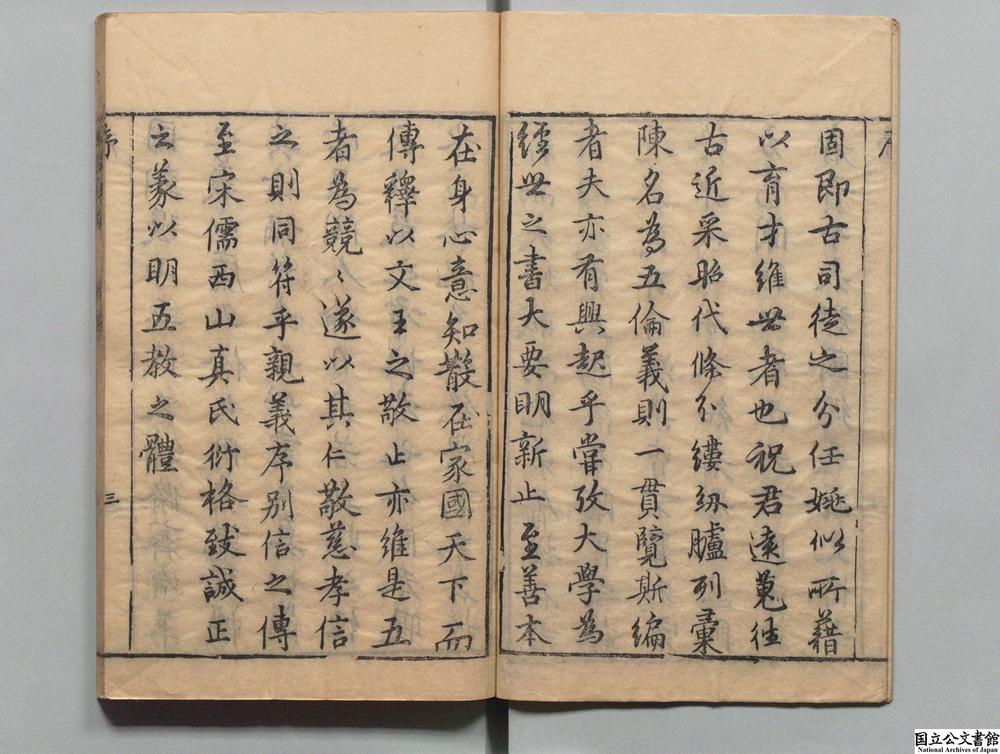 序
固即古司徒之分任姚似所藉
以育才維世者也祝君遠蒐往
古近采昭代條分縷紛臚列彙
陳名為五倫義則一貫覽斯編
者夫亦有興起乎嘗攷大學為
經世之書大要明新止至善本
在身心意知散在家國天下而
傳釋以文王之敬止亦維是五
者為競〻遂以其仁敬慈孝信
之則同符乎親義序別信之傳
至宋儒西山真氏衍格致誠正
之義以明五教之體
序
三
国立公文書館
National Archives of Japan